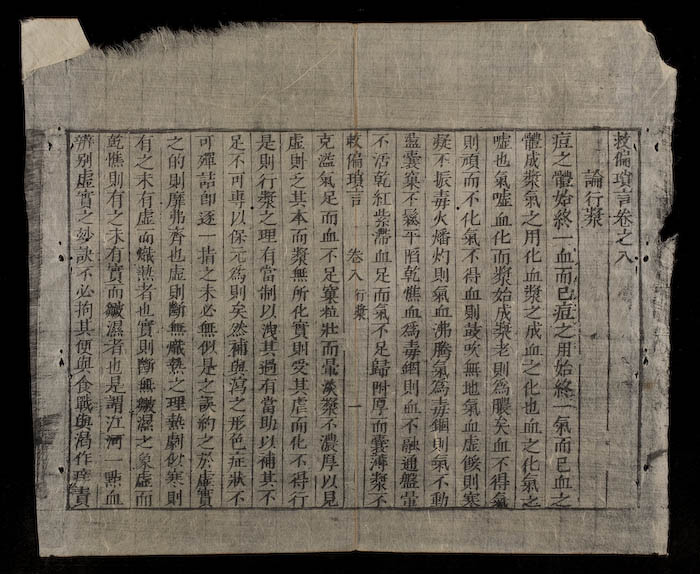 救偏瑣言卷之八
論行漿
痘之體始終一血而已痘之用始終一氣而已血之
體成漿氣之用化血漿之成血之化也血之化氣之
噓也氣噓血化而漿始成漿老則為膿矣血不得氣
則頑而不化氣不得血則鼓吹無地氣血虛餒則寒
凝不振毒火燔灼則氣血沸騰氣為毒錮則氣不動
盪囊窠不鬆平陷乾憔血為毒錮則血不融通盤暈
不活乾紅紫滯血足而氣不足歸附厚而囊薄漿不
克滋氣足而血不足窠粒壯而暈淡漿不濃厚以見
虛則乏其本而漿無所化實則受其虐而化不得行
是則行漿之理有當制以洩其過有當助以補其不
足不可專以保元為則矣然補與瀉之形色症狀不
可殫詰即逐一揩之未必無似是之誤約之於虛實
之的則靡弗齊也虛則斷無熾熱之理熱劇似寒則
有之未有虛而熾熱者也實則斷無皦濕之象虛而
乾憔則有之未有實而皦濕者也是謂江河一點血
辨別虛實之妙訣不必拘其便與食戰與渴作瘁責
救偏瑣言
卷八 行漿
一